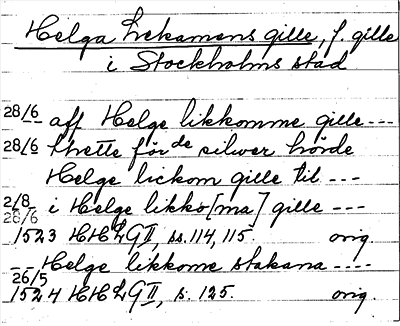 Helga Lekamens gille, f. gille
i Stockholms stad
28/6 aff Helge likkomme gille ---
28/6 thrette förde silwer hörde
Helge lickom gille til ---
2/8 i Helge likko[ma] gille ---
28/6
1523 HHLG II, ss. 114, 115. orig.
Helge likkome stakana ----
26/5
1524 HHLG II, s. 125. orig.